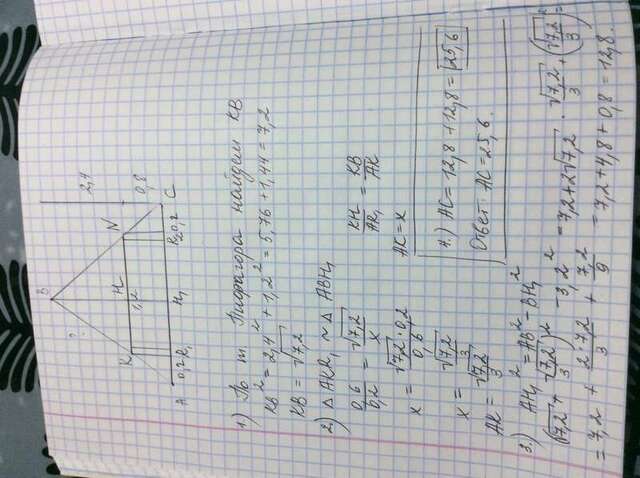 B
?
2,4
K
H
N
1,2
0,8
A
0,2
R₁
H₁
R₂
0,2
C
1.) По т. Пифагора найдем KB
KB² = 2,4² + 1,2² = 5,76 + 1,44 = 7,2
KB = √7,2
2.) △ AKR₁ ~ △ ABH₁
0,6/0,2 = √7,2/x
KH/AR₁ = KB/AK
x = √7,2 · 0,2/0,6
AK = x
x = √7,2/3
AK = √7,2/3
4.) AC = 12,8 + 12,8 = 25,6
Ответ: AC = 25,6.
3.) AH₁² = AB² - BH₁²
(√7,2 + √7,2/3)² - 3,2² = 7,2 + 2√7,2 · √7,2/3 + (√7,2/3)² =
= 7,2 + 2·7,2/3 + 7,2/9 = 7,2 + 4,8 + 0,8 = 12,8.